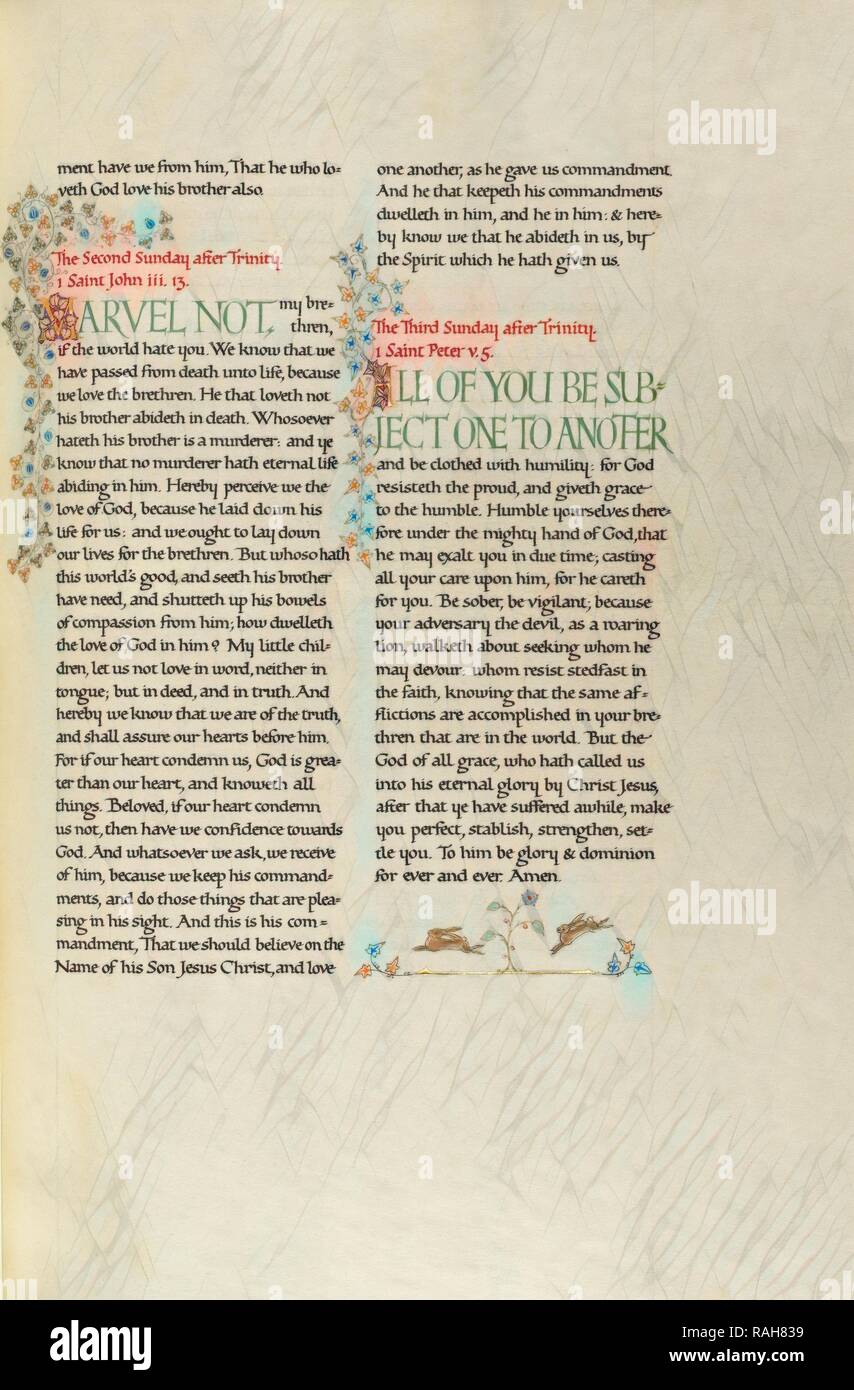 ment have we from him, That he who lo=
veth God love his brother also.
The Second Sunday after Trinity.
1 Saint John iii. 13.
MARVEL NOT, my bre=
thren,
if the world hate you. We know that we
have passed from death unto life, because
we love the brethren. He that loveth not
his brother abideth in death. Whosoever
hateth his brother is a murderer: and ye
know that no murderer hath eternal life
abiding in him. Hereby perceive we the
love of God, because he laid down his
life for us: and we ought to lay down
our lives for the brethren. But whoso hath
this world's good, and seeth his brother
have need, and shutteth up his bowels
of compassion from him; how dwelleth
the love of God in him? My little chil=
dren, let us not love in word, neither in
tongue; but in deed, and in truth. And
hereby we know that we are of the truth,
and shall assure our hearts before him.
For if our heart condemn us, God is grea=
ter than our heart, and knoweth all
things. Beloved, if our heart condemn
us not, then have we confidence towards
God. And whatsoever we ask, we receive
of him, because we keep his command=
ments, and do those things that are plea=
sing in his sight. And this is his com=
mandment, That we should believe on the
Name of his Son Jesus Christ, and love
one another, as he gave us commandment.
And he that keepeth his commandments
dwelleth in him, and he in him: & here=
by know we that he abideth in us, by
the Spirit which he hath given us.
The Third Sunday after Trinity.
1 Saint Peter v. 5.
ALL OF YOU BE SUB=
JECT ONE TO ANOTHER
and be clothed with humility: for God
resisteth the proud, and giveth grace
to the humble. Humble yourselves there=
fore under the mighty hand of God, that
he may exalt you in due time; casting
all your care upon him, for he careth
for you. Be sober, be vigilant; because
your adversary the devil, as a roaring
lion, walketh about seeking whom he
may devour: whom resist stedfast in
the faith, knowing that the same af=
flictions are accomplished in your bre=
thren that are in the world. But the
God of all grace, who hath called us
into his eternal glory by Christ Jesus,
after that ye have suffered awhile, make
you perfect, stablish, strengthen, set=
tle you. To him be glory & dominion
for ever and ever. Amen.
alamy
alamy
alamy
a
a
a
a
alamy
Image ID: RAH839
www.alamy.com